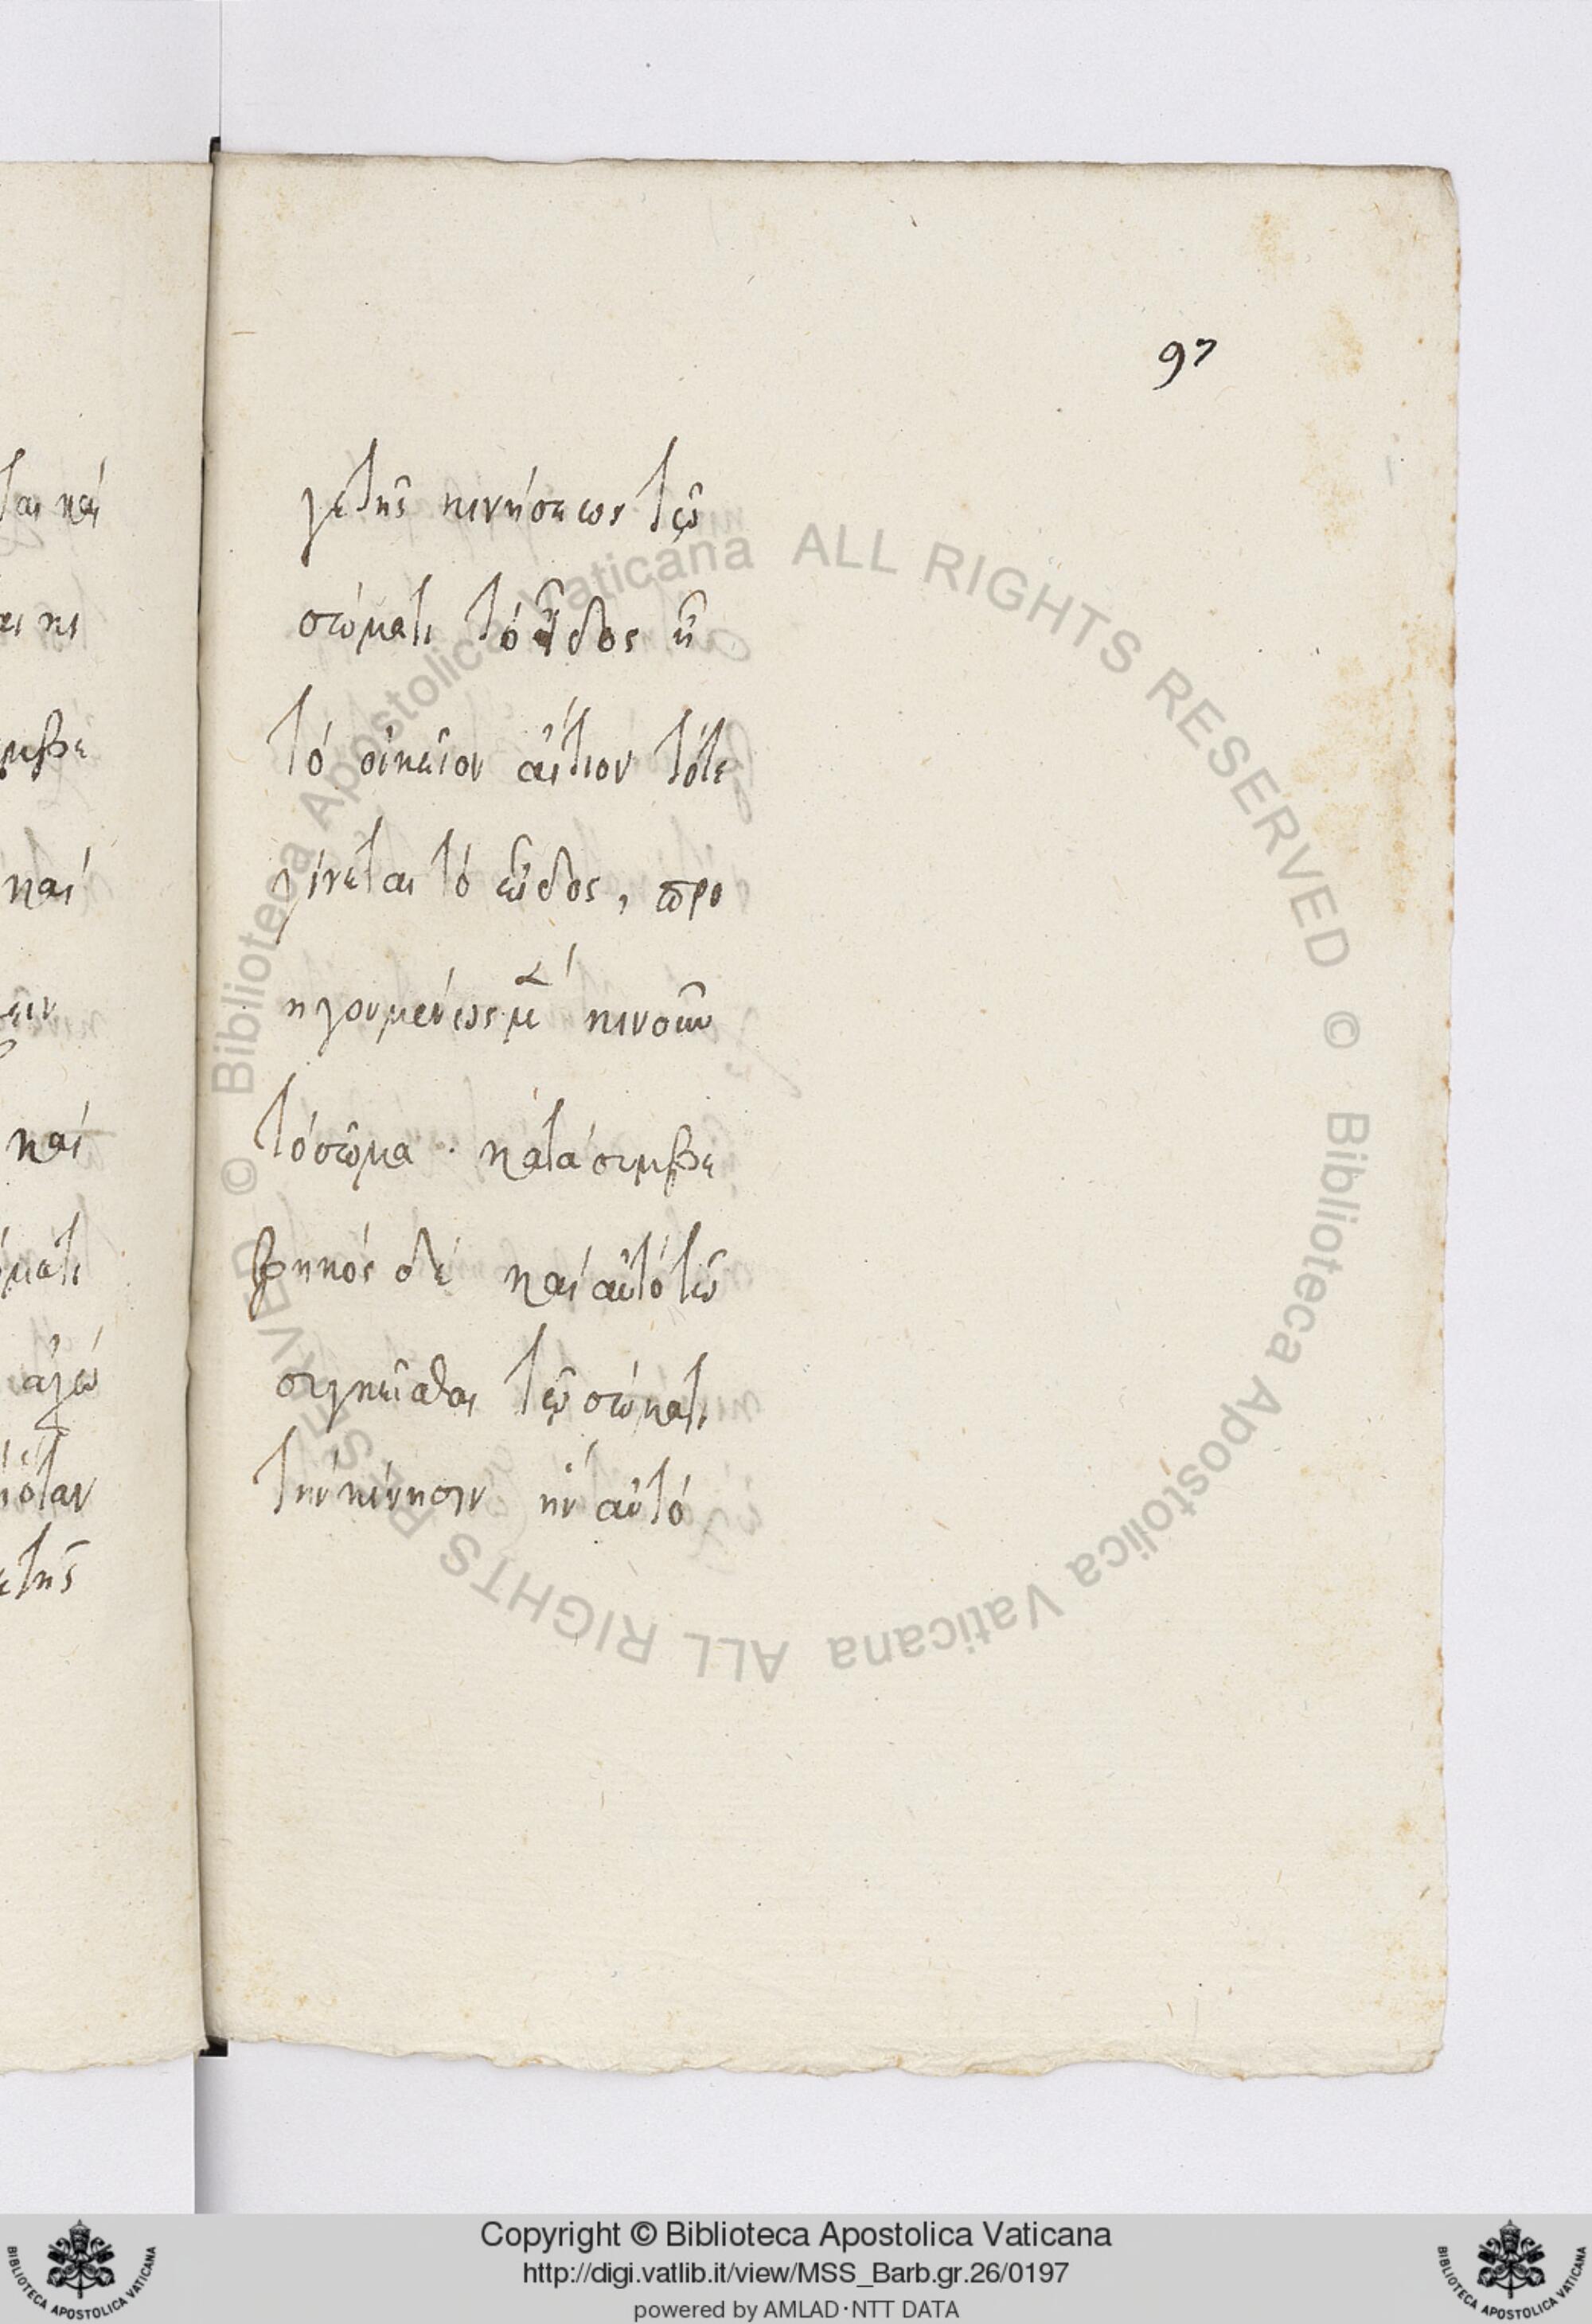 97
γε τῆς κινήσεως τῷ
σώματι τὸ εἶδος ἢ
τὸ οἰκεῖον αἴτιον τότε
γίνεται τὸ εἶδος, προ
ηγουμένως μὲν κινοῦν
τὸ σῶμα · κατὰ συμβε
βηκὸς δὲ καὶ αὐτὸ τῷ
συγκεῖσθαι τῷ σώματι
τὴν κίνησιν ἣν αὐτὸ
ται καὶ
αι κι
μβε
καὶ
ειν
καὶ
ματι
όταν
ετῆς
© Biblioteca Apostolica Vaticana ALL RIGHTS RESERVED © Biblioteca Apostolica Vaticana ALL RIGHTS RESERVED
Copyright © Biblioteca Apostolica Vaticana
http://digi.vatlib.it/view/MSS_Barb.gr.26/0197
powered by AMLAD·NTT DATA
BIBLIOTECA APOSTOLICA VATICANA
BIBLIOTECA APOSTOLICA VATICANA